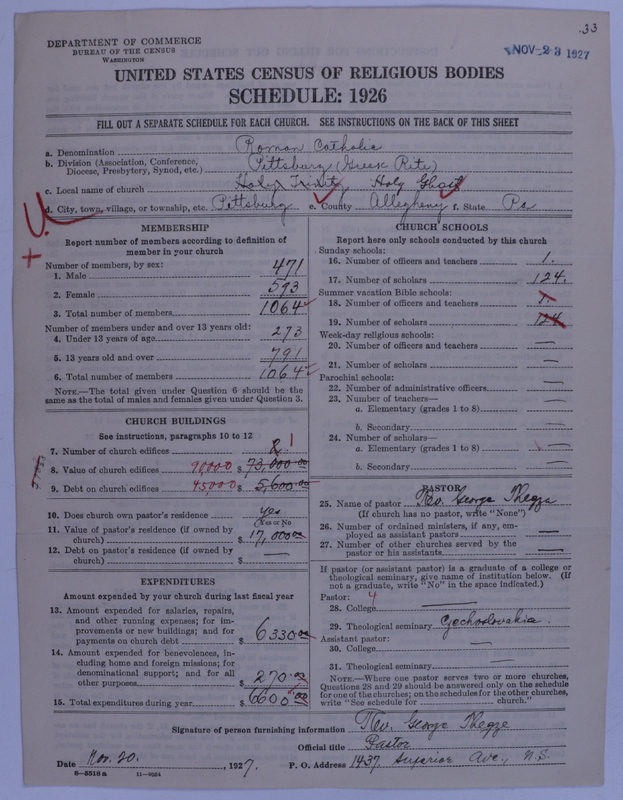 33
DEPARTMENT OF COMMERCE
BUREAU OF THE CENSUS
WASHINGTON
NOV 23 1927
UNITED STATES CENSUS OF RELIGIOUS BODIES
SCHEDULE: 1926
FILL OUT A SEPARATE SCHEDULE FOR EACH CHURCH. SEE INSTRUCTIONS ON THE BACK OF THIS SHEET
a. Denomination Roman Catholic
b. Division (Association, Conference, Diocese, Presbytery, Synod, etc.) Pittsburg (Greek Rite)
c. Local name of church Holy Trinity, Holy Ghost
d. City, town, village, or township, etc. Pittsburg e. County Allegheny f. State Pa
MEMBERSHIP
Report number of members according to definition of
member in your church
Number of members, by sex:
1. Male 471
2. Female 593
3. Total number of members 1064
Number of members under and over 13 years old:
4. Under 13 years of age 273
5. 13 years old and over 791
6. Total number of members 1064
NOTE.—The total given under Question 6 should be the
same as the total of males and females given under Question 3.
CHURCH BUILDINGS
See instructions, paragraphs 10 to 12
7. Number of church edifices 2 1
8. Value of church edifices 90,000 $ 73,000 00
9. Debt on church edifices 45,000 $ 5,600 00
10. Does church own pastor's residence yes
(Yes or No)
11. Value of pastor's residence (if owned by
church) $ 17,000 00
12. Debt on pastor's residence (if owned by
church) $ —
EXPENDITURES
Amount expended by your church during last fiscal year
13. Amount expended for salaries, repairs,
and other running expenses; for im-
provements or new buildings; and for
payments on church debt $ 6330 00
14. Amount expended for benevolences, in-
cluding home and foreign missions; for
denominational support; and for all
other purposes $ 270.00
15. Total expenditures during year $ 6600 00
CHURCH SCHOOLS
Report here only schools conducted by this church
Sunday schools:
16. Number of officers and teachers 1.
17. Number of scholars 124.
Summer vacation Bible schools:
18. Number of officers and teachers 1.
19. Number of scholars 124
Week-day religious schools:
20. Number of officers and teachers —
21. Number of scholars —
Parochial schools:
22. Number of administrative officers —
23. Number of teachers—
a. Elementary (grades 1 to 8) —
b. Secondary —
24. Number of scholars—
a. Elementary (grades 1 to 8) —
b. Secondary —
PASTOR
25. Name of pastor Rev. George Thegze
(If church has no pastor, write "None")
26. Number of ordained ministers, if any, em-
ployed as assistant pastors —
27. Number of other churches served by the
pastor or his assistants —
If pastor (or assistant pastor) is a graduate of a college or
theological seminary, give name of institution below. (If
not a graduate, write "No" in the space indicated.)
Pastor: 4
28. College —
29. Theological seminary Czechoslovakia.
Assistant pastor:
30. College —
31. Theological seminary —
NOTE.—Where one pastor serves two or more churches,
Questions 28 and 29 should be answered only on the schedule
for one of the churches; on the schedules for the other churches,
write "See schedule for church."
Signature of person furnishing information Rev. George Thegze
Official title Pastor
Date Nov. 20. , 1927. P. O. Address 1437 Superior Ave., N.S.
8—5516 a 11—9024